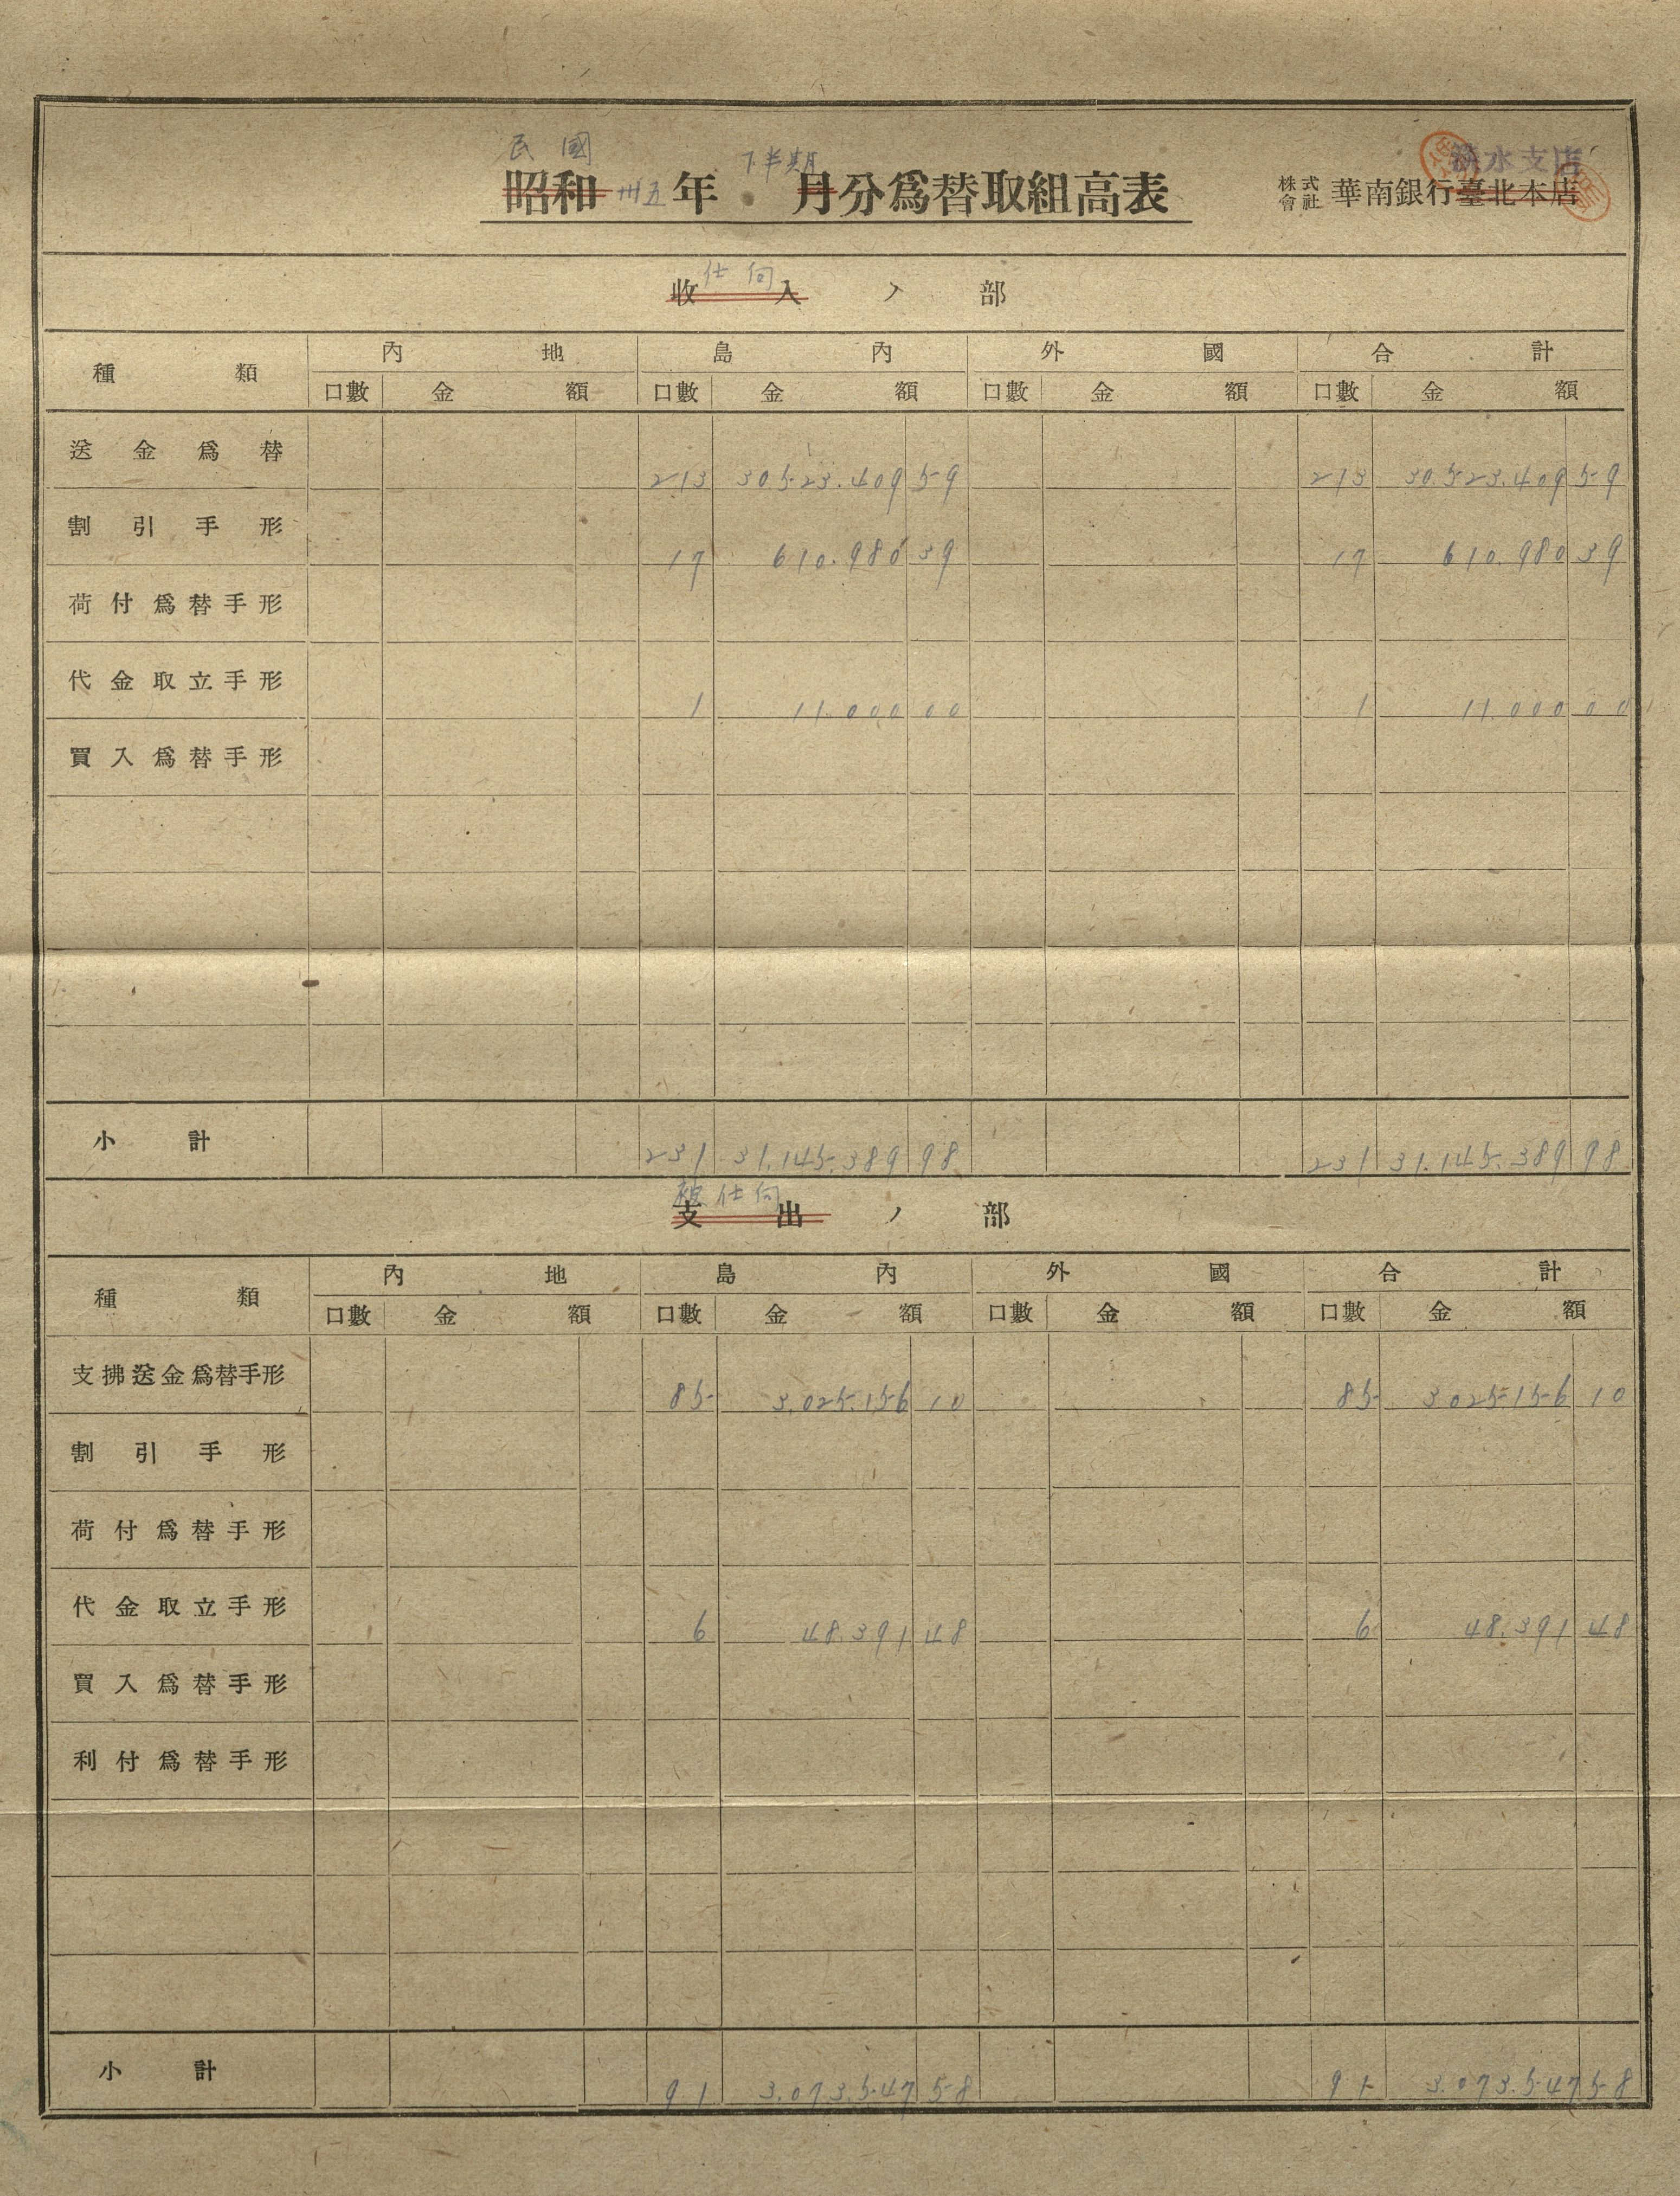 民國 下半期
昭和卅五年 月分爲替取組高表
淡水支店
株式會社 華南銀行臺北本店
仕向
收入ノ部
種類 內地 島內 外國 合計
口數 金額 口數 金額 口數 金額 口數 金額
送金爲替 213 30.523.409 59 213 30.523.409 59
割引手形 17 610.980 39 17 610.980 39
荷付爲替手形
代金取立手形 1 11.000 00 1 11.000 00
買入爲替手形
小計 231 31.145.389 98 231 31.145.389 98
被仕向
支出ノ部
種類 內地 島內 外國 合計
口數 金額 口數 金額 口數 金額 口數 金額
支拂送金爲替手形 85 3.025.156 10 85 3.025.156 10
割引手形
荷付爲替手形
代金取立手形 6 48.391 48 6 48.391 48
買入爲替手形
利付爲替手形
小計 91 3.073.547 58 91 3.073.547 58